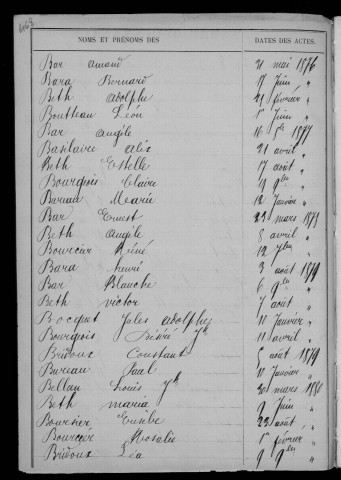 NOMS ET PRÉNOMS DES DATES DES ACTES.
Bar Amand 21 mai 1876
Bara Bernard 17 Juin "
Beth Adolphe 21 février "
Boutteau Léon 5 Juin "
Bar Angèle 16 1877
Basilaire Alix 21 avril "
Beth Estelle 17 août "
Bourgeois Claire 19 9bre "
Bureau Marie 12 Janvier "
Bar Ernest 23 mars 1878
Beth Angèle 8 avril "
Bourcier Réné 12 7bre "
Bara henri 3 août 1879
Bar Blanche 6 9bre "
Beth victor 7 août "
Bocquet Jules Adolphe 11 Janvier "
Bourgeois Désiré Jh 11 avril "
Bridoux Constant 5 août 1879
Bureau Paul 11 Janvier "
Bellan Louis Jh 30 mars 1880
Beth maria 9 Juin "
Boursier Eusèbe 23 août "
Bourcier Rosalie février "
Bridoux Léa 9 9bre "